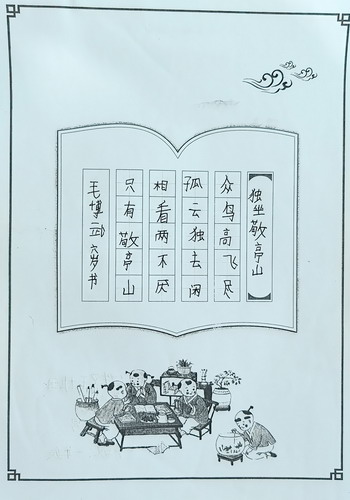 独坐敬亭山
众鸟高飞尽
孤云独去闲
相看两不厌
只有敬亭山
毛博动六岁书